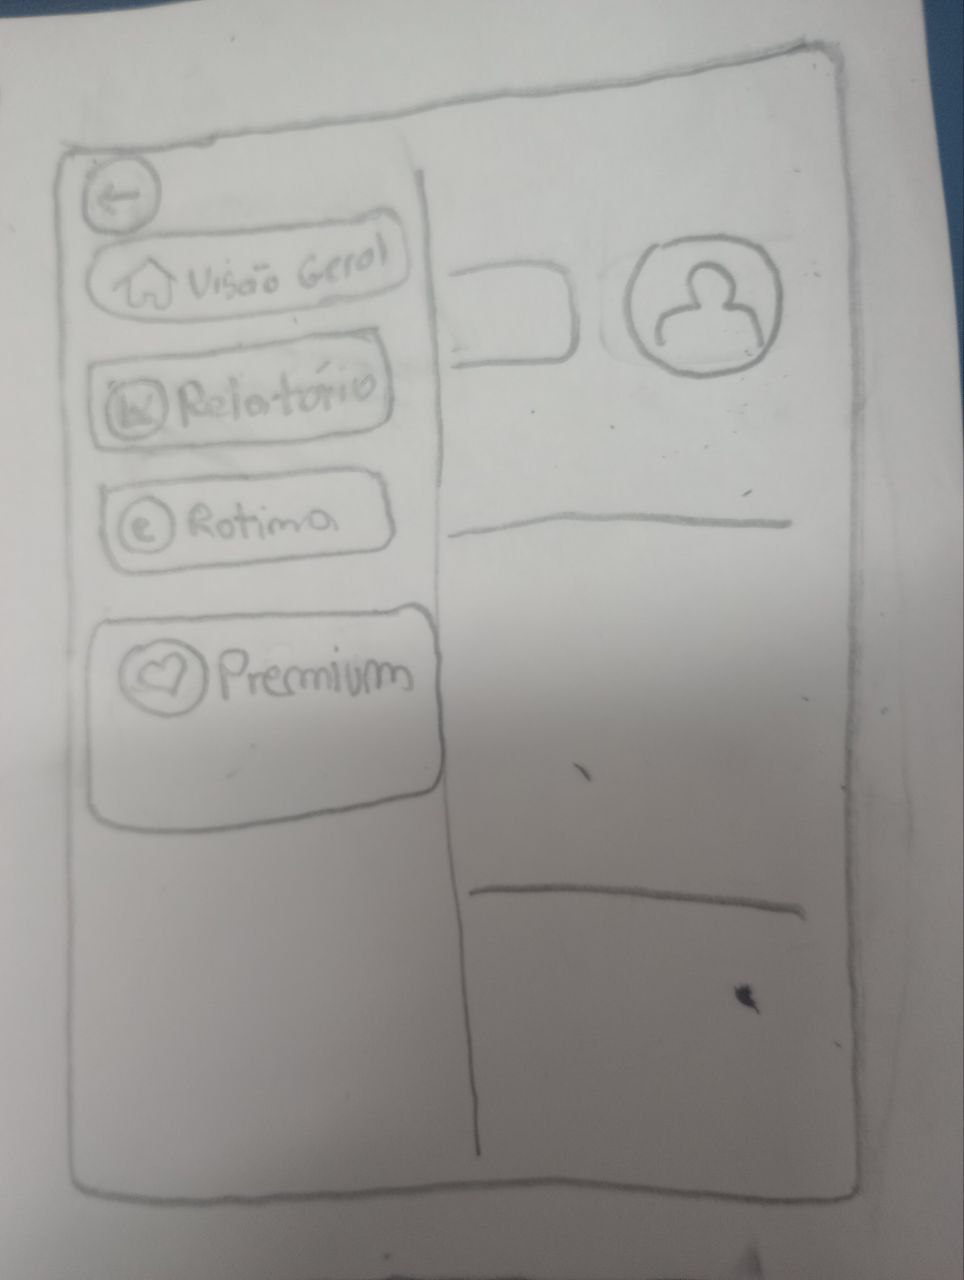 Visão Geral
Relatório
e Rotina
Premium